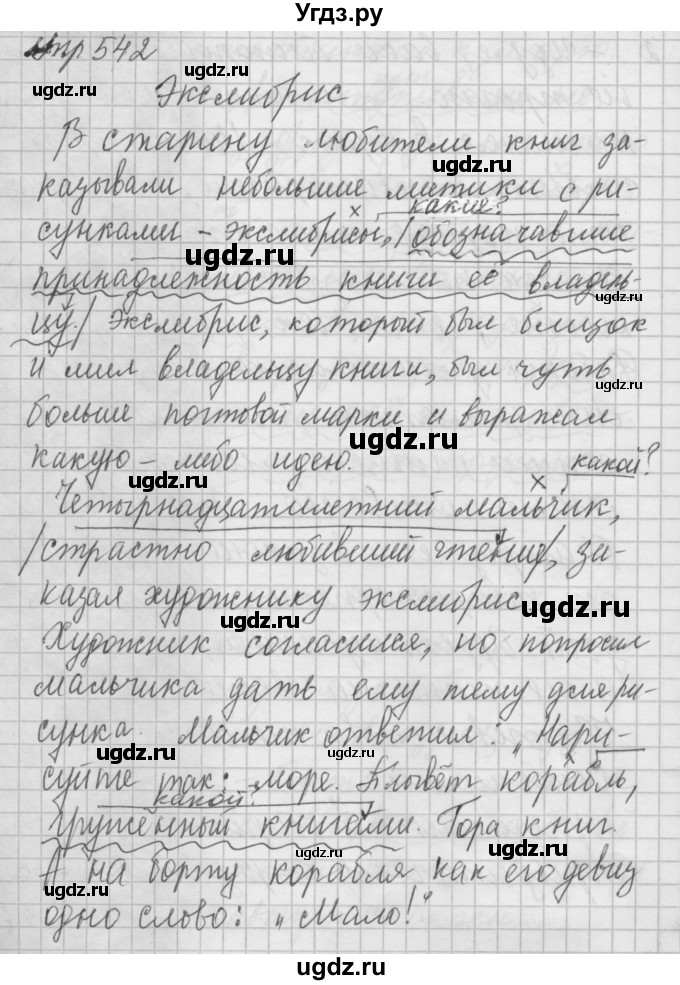 Угдз.ру
Упр 542
Экслибрис
В старину любители книг за-
казывали небольшие листики с ри-
какие?
сунками - экслибрисы, /обозначавшие
принадлежность книги её владель-
цу./ Экслибрис, который был близок
и мил владельцу книги, был чуть
больше почтовой марки и выражал
какую-либо идею.
какой?
Четырнадцатилетний мальчик,
/страстно любивший чтение/, за-
казал художнику экслибрис.
Художник согласился, но попросил
мальчика дать ему тему для ри-
сунка. Мальчик ответил: „Нари-
суйте так: море. Плывёт корабль,
какой?
гружённый книгами. Гора книг.
А на борту корабля как его девиз
одно слово: „Мало!"
ugdz.ru
ugdz.ru
ugdz.ru
ugdz.ru
ugdz.ru
ugdz.ru
ugdz.ru
ugdz.ru
ugdz.ru
ugdz.ru
ugdz.ru
ugdz.ru
ugdz.ru
ugdz.ru
ugdz.ru
ugdz.ru
ugdz.ru
ugdz.ru
ugdz.ru
ugdz.ru
ugdz.ru